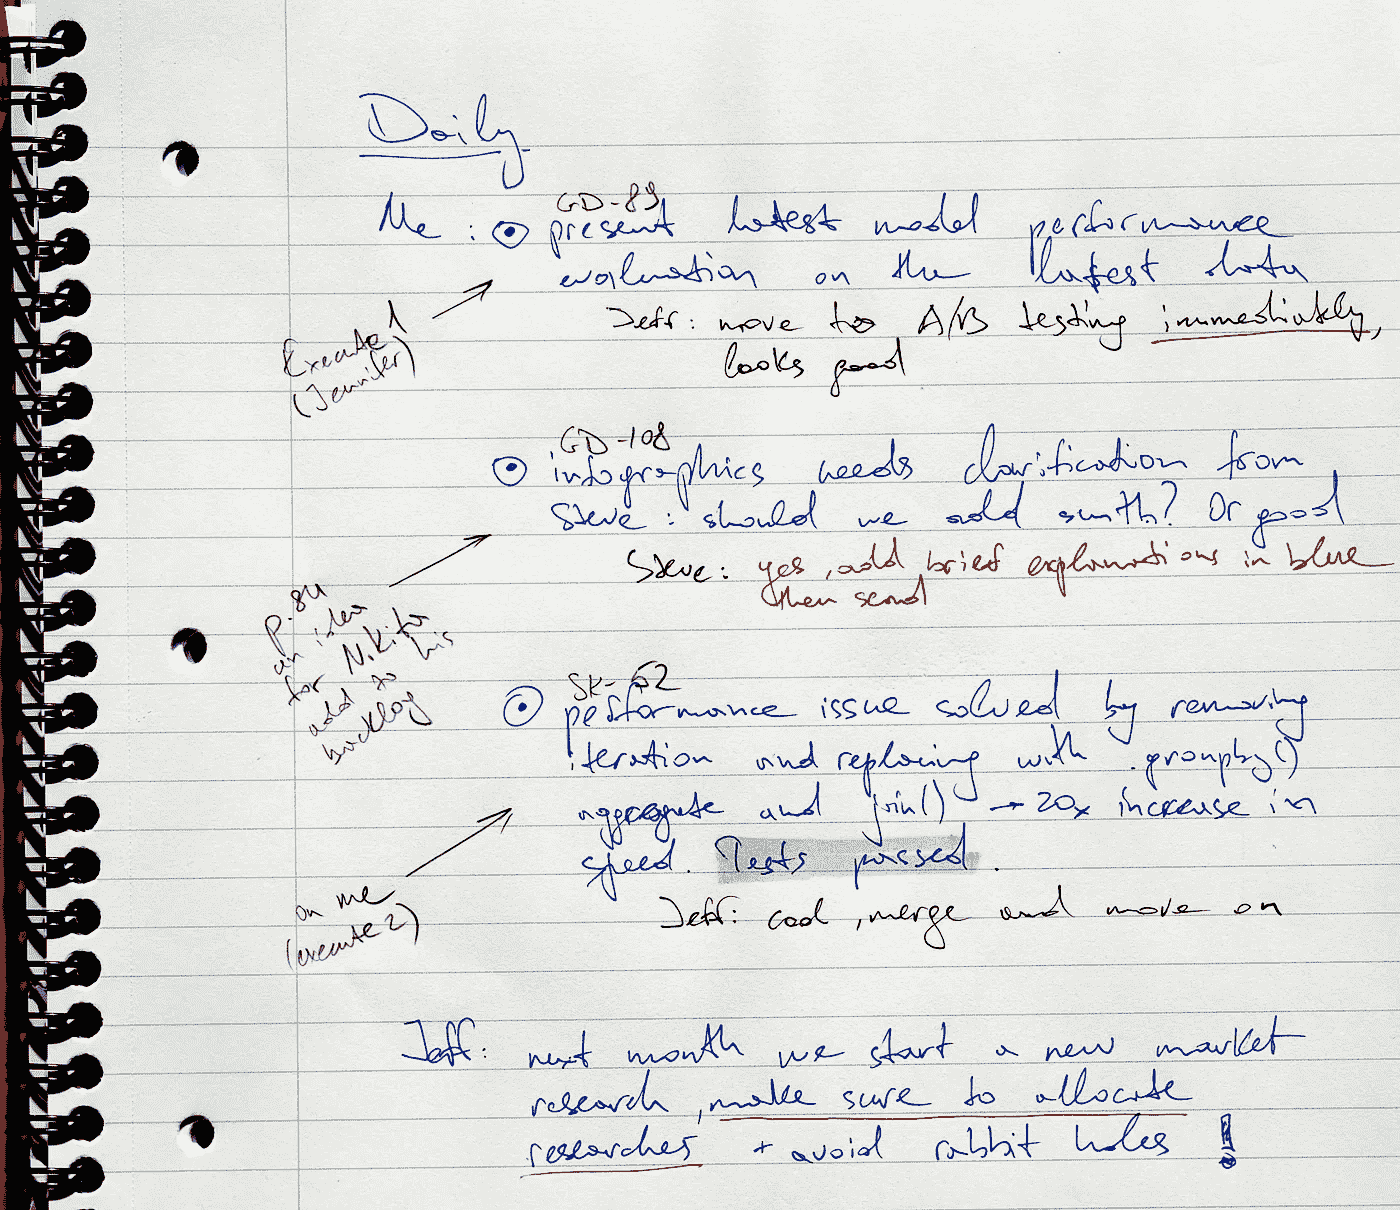 Daily
GD-89
Me : present latest model performance
evaluation on the latest data
Jeff: move to A/B testing immediately,
looks good
Execute 1
(Jennifer)
GD-108
infographics needs clarification from
Steve : should we add smth? Or good
Steve: yes, add brief explanations in blue
then send
p.84
an idea
for Nikita
add to his
backlog
SK-52
performance issue solved by removing
iteration and replacing with .groupby()
aggregate and join() → 20x increase in
speed. Tests passed.
Jeff: cool, merge and move on
on me
(execute 2)
Jeff: next month we start a new market
research, make sure to allocate
researches + avoid rabbit holes !